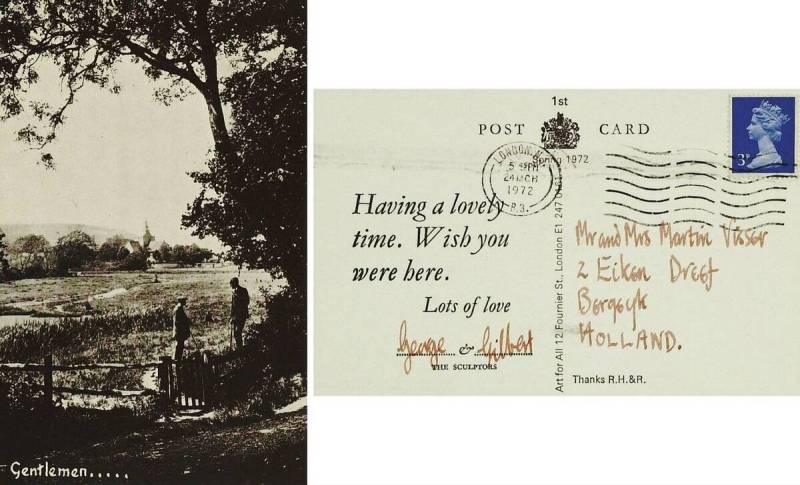 Gentlemen.....
1st
POST CARD
Spring 1972
LONDON
24 MCH
1972
3P
Having a lovely
time. Wish you
were here.
Lots of love
George & Gilbert
THE SCULPTORS
Art for All 12 Fournier St., London E1 247 0161
Mr and Mrs Martin Visser
2 Eiken Dreef
Bergeyk
HOLLAND.
Thanks R.H.&R.